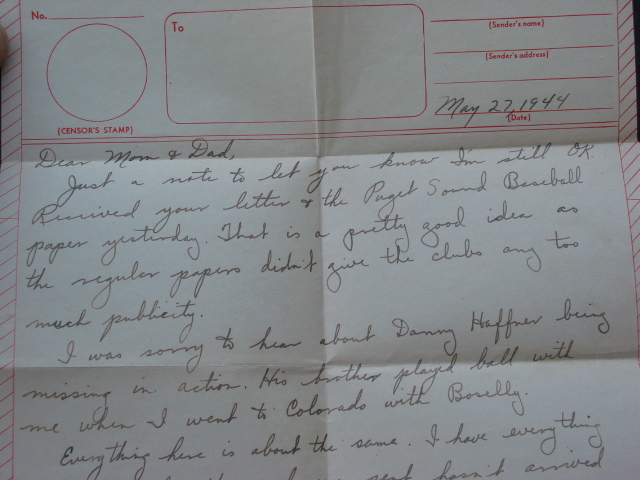 No.
To
(Sender's name)
(Sender's address)
May 27, 1944
(Date)
(CENSOR'S STAMP)
Dear Mom & Dad,
Just a note to let you know I'm still OK.
Received your letter & the Puget Sound Baseball
paper yesterday. That is a pretty good idea as
the regular papers didn't give the clubs any too
much publicity.
I was sorry to hear about Danny Haffner being
missing in action. His brother played ball with
me when I went to Colorado with Boselly.
Everything here is about the same. I have everything
sent hasn't arrived